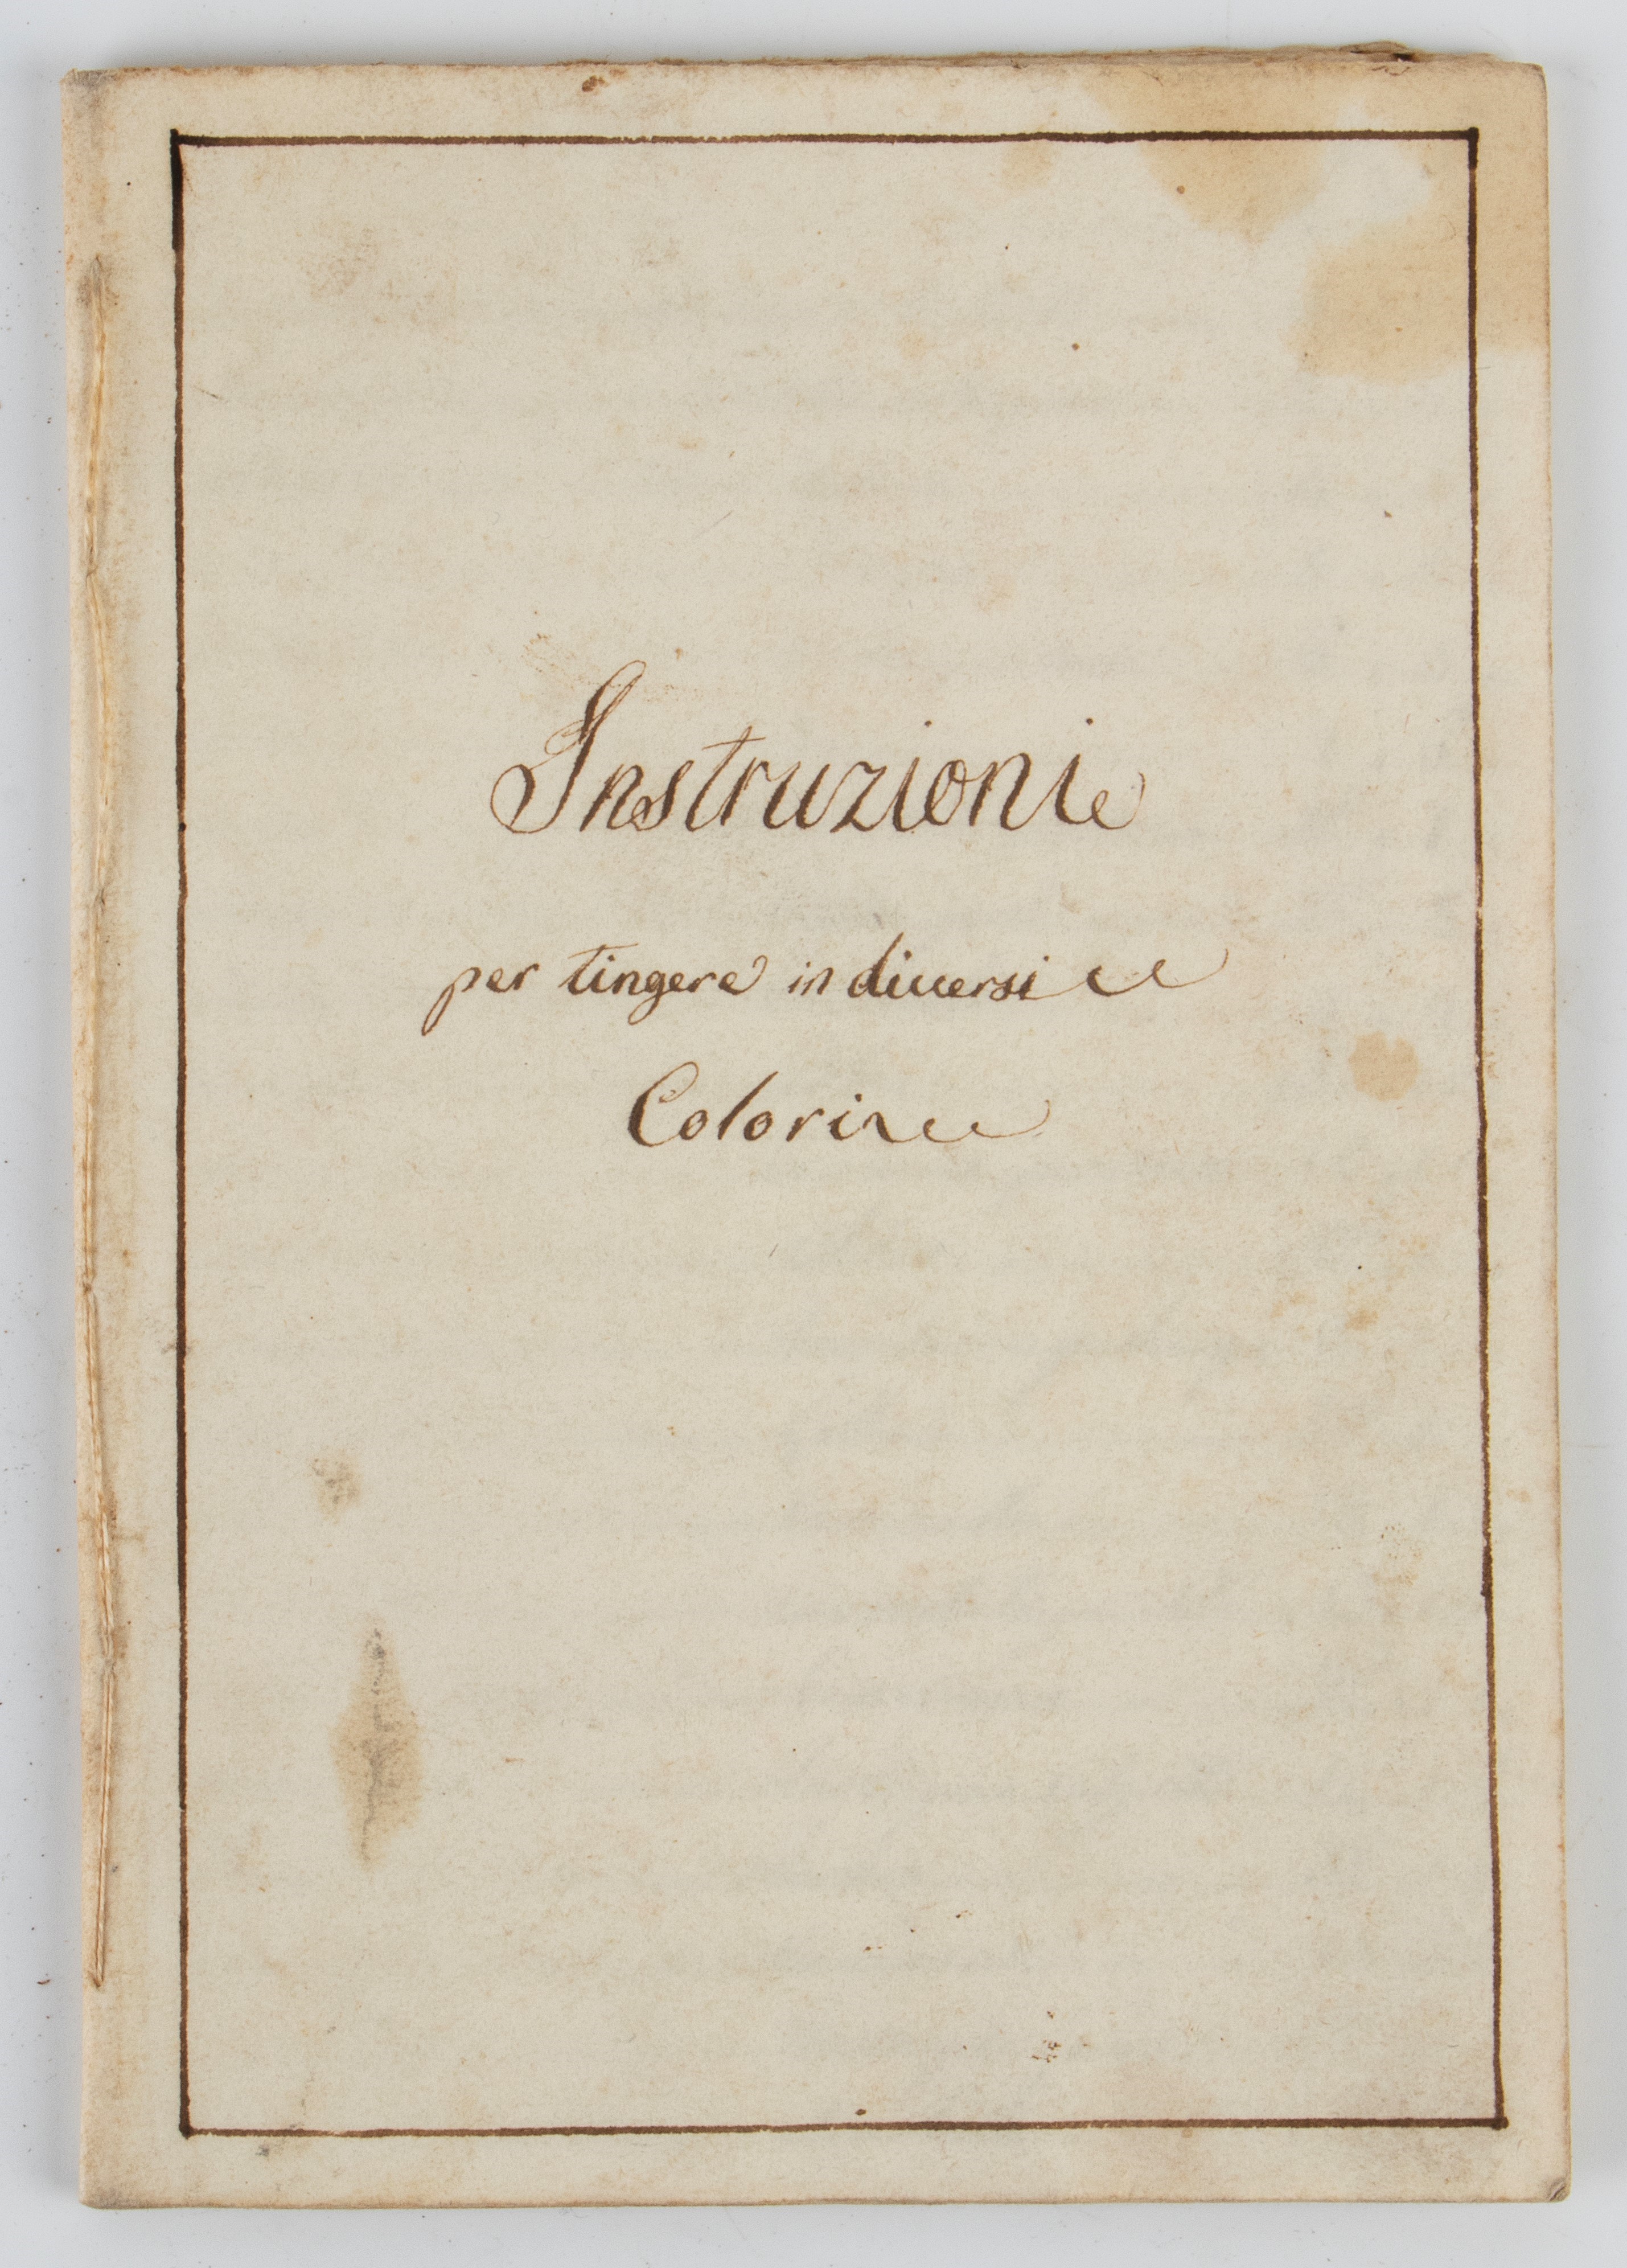 Instruzioni
per tingere in diversi
Colori